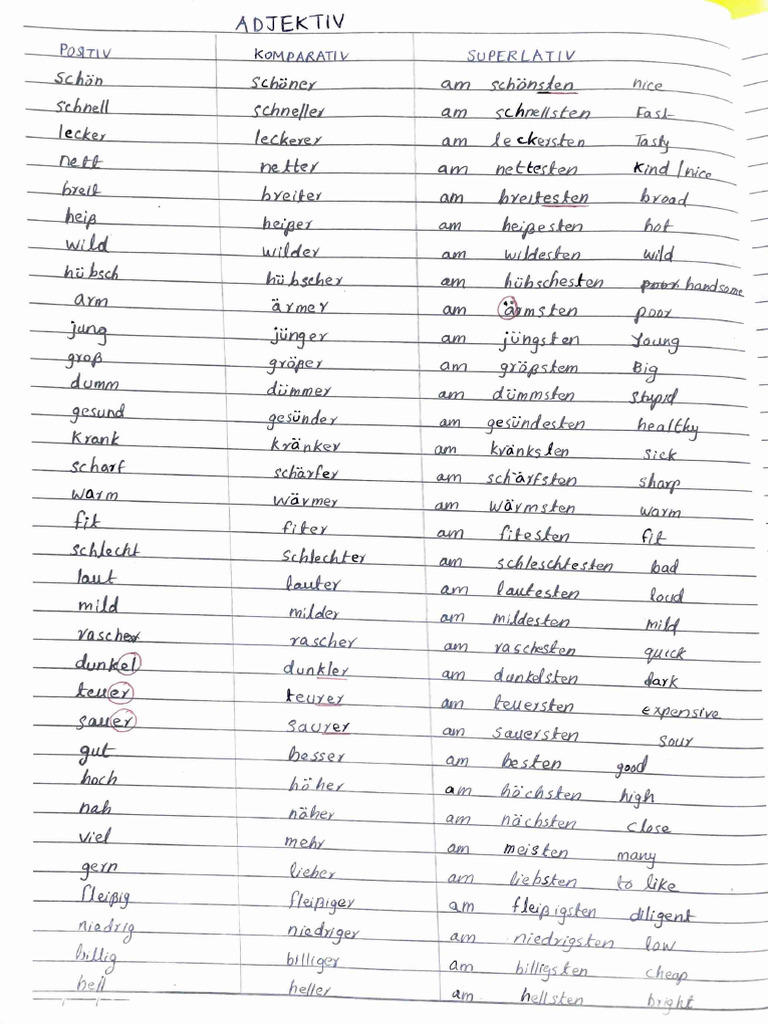 ADJEKTIV
POSTIV KOMPARATIV SUPERLATIV
schön schöner am schönsten nice
schnell schneller am schnellsten Fast
lecker leckerer am leckersten Tasty
nett netter am nettesten Kind/nice
breit breiter am breitesten broad
heiß heißer am heißesten hot
wild wilder am wildesten wild
hübsch hübscher am hübschesten poor handsome
arm ärmer am ärmsten poor
jung jünger am jüngsten Young
groß größer am größstem Big
dumm dümmer am dümmsten stupid
gesund gesünder am gesündesten healthy
Krank kränker am kränksten sick
scharf schärfer am schärfsten sharp
warm wärmer am wärmsten warm
fit fiter am fitesten fit
schlecht schlechter am schleschtesten bad
laut lauter am lautesten loud
mild milder am mildesten mild
rascher rascher am raschesten quick
dunkel dunkler am dunkelsten dark
teuer teurer am teuersten expensive
sauer saurer am sauersten sour
gut besser am besten good
hoch höher am höchsten high
nah näher am nächsten close
viel mehr am meisten many
gern lieber am liebsten to like
fleißig fleißiger am fleißigsten diligent
niedrig niedriger am niedrigsten low
billig billiger am billigsten cheap
hell heller am hellsten bright